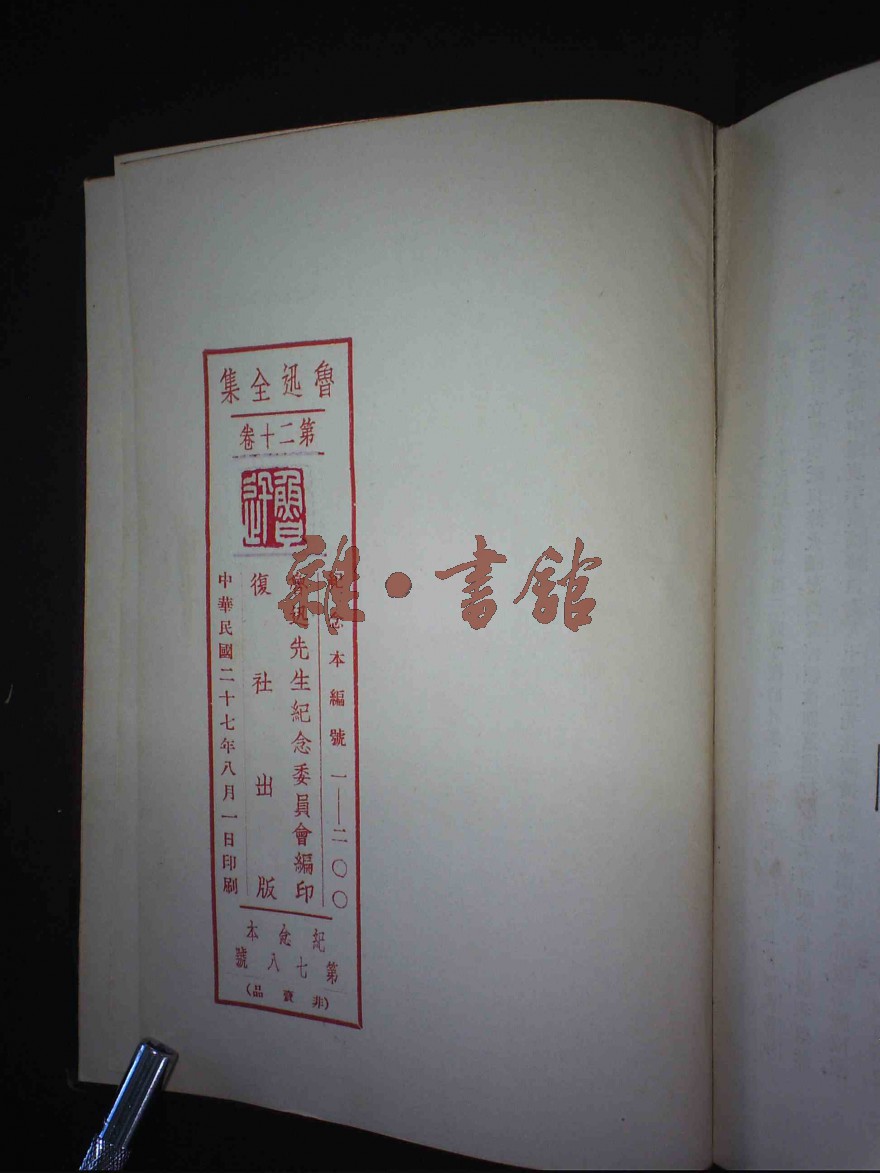 魯迅全集
第二十卷
魯迅
紀念本編號 一——二〇〇
魯迅先生紀念委員會編印
復社出版
中華民國二十七年八月一日印刷
紀念本
第七八號
(非賣品)
雜·書館